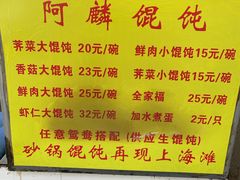 阿麟馄饨
荠菜大馄饨 20元/碗 鲜肉小馄饨15元/碗
香菇大馄饨 23元/碗 荠菜小馄饨15元/碗
鲜肉大馄饨 25元/碗 全家福 25元/碗
虾仁大馄饨 32元/碗 加水煮蛋 2元/只
任意鸳鸯搭配(供应生馄饨)
砂锅馄饨再现上海滩